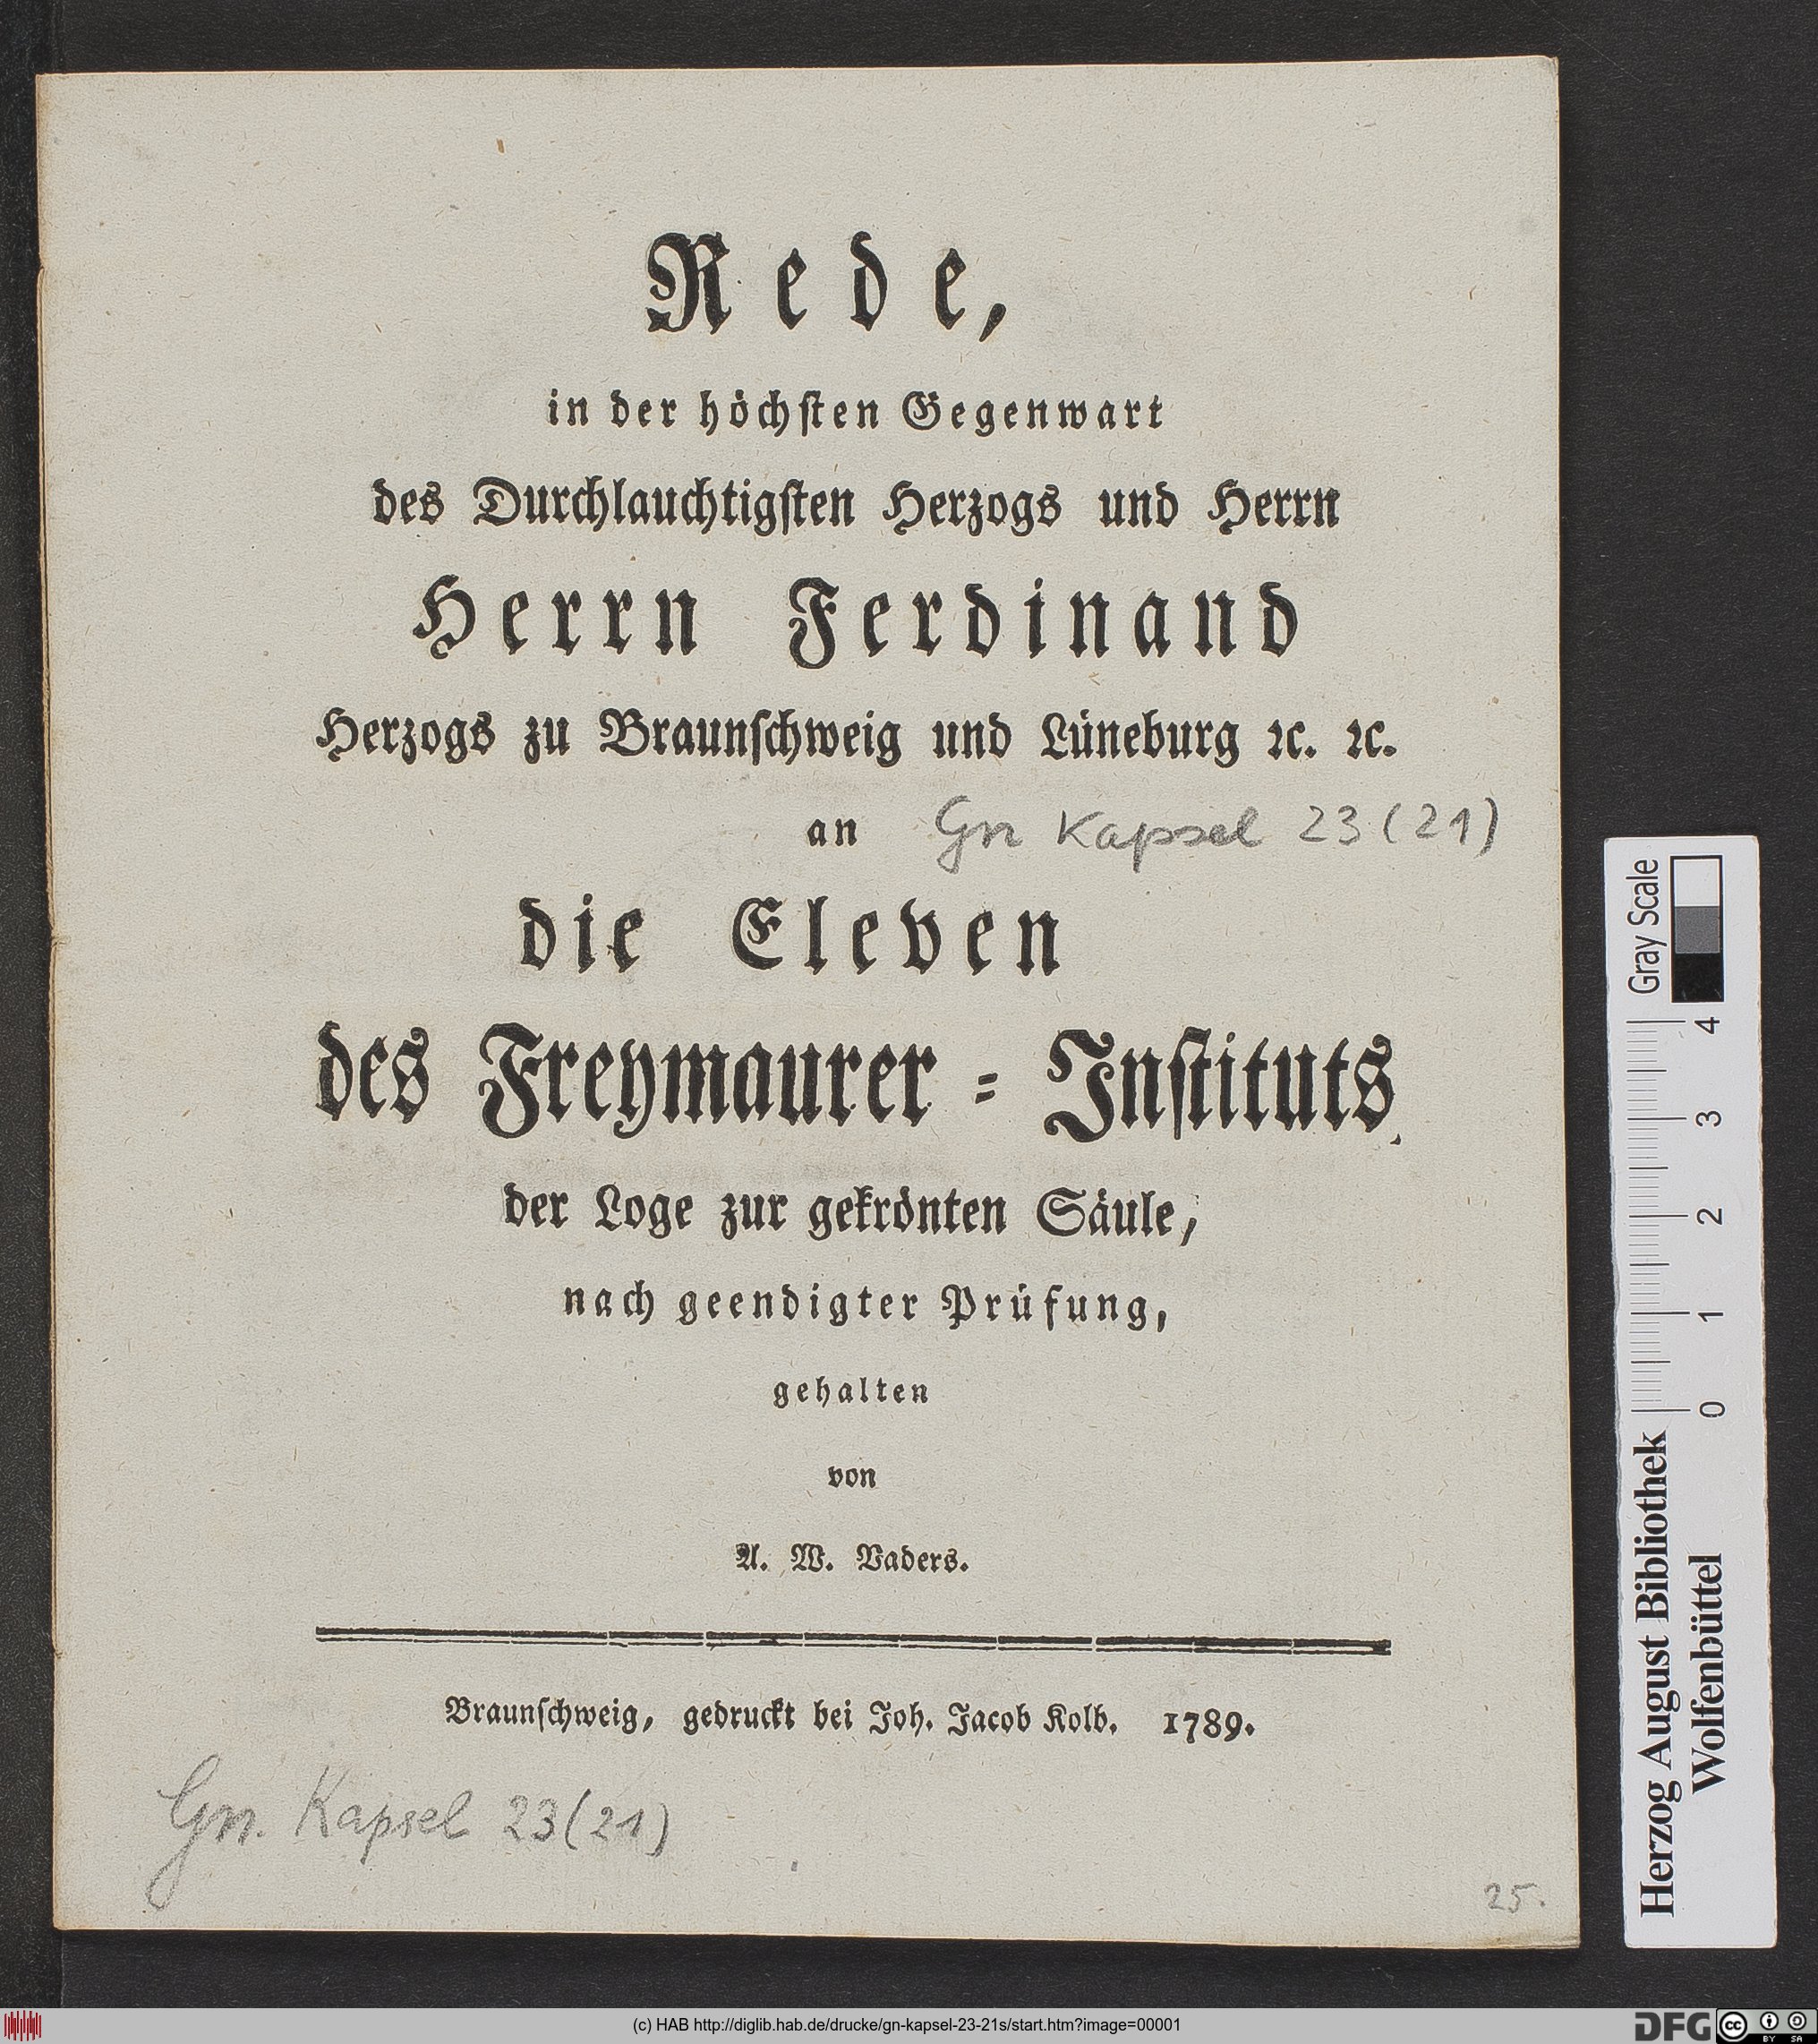 Rede,
in der höchſten Gegenwart
des Durchlauchtigſten Herzogs und Herrn
Herrn Ferdinand
Herzogs zu Braunſchweig und Lüneburg ꝛc. ꝛc.
an Gn Kapsel 23 (21)
die Eleven
des Freymaurer = Inſtituts
der Loge zur gekrönten Säule,
nach geendigter Prüfung,
gehalten
von
A. W. Vaders.
Braunſchweig, gedruckt bei Joh. Jacob Kolb. 1789.
Gn. Kapsel 23 (21)
25.
Gray Scale
4
3
2
1
0
Herzog August Bibliothek
Wolfenbüttel
(c) HAB http://diglib.hab.de/drucke/gn-kapsel-23-21s/start.htm?image=00001
DFG
cc
BY SA